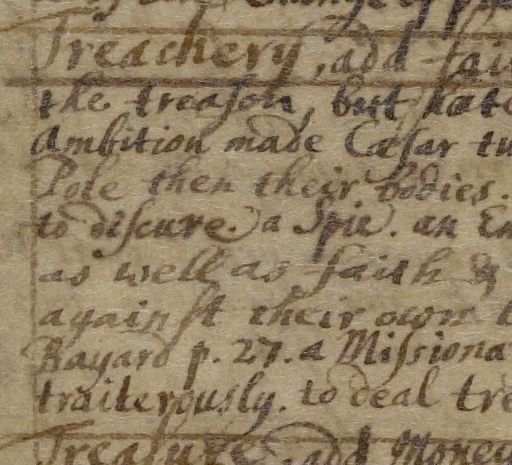 Change of
Treachery, add fai
the treason, but hate
Ambition made Cæsar tu
Pole then their bodies.
to discure. a Spie. an En
as well as faith &
against their own
Bayard p. 27. a Missiona
traiterously. to deal tre
Treasure, add Money